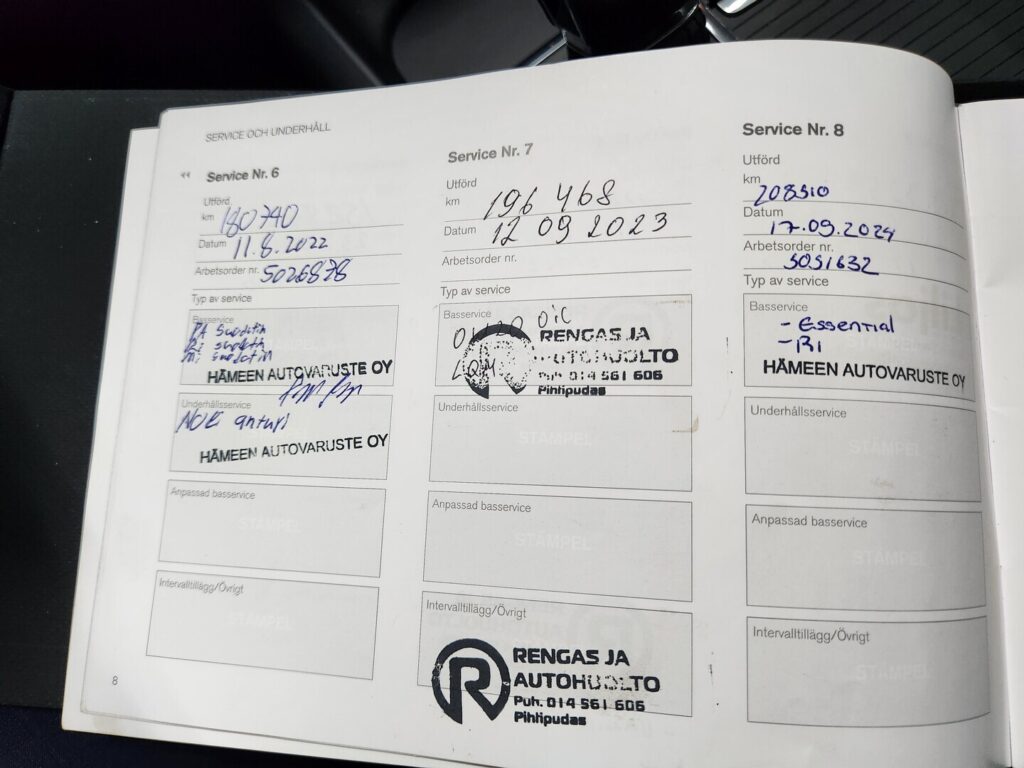 SERVICE OCH UNDERHÅLL
Service Nr. 6
Utförd
km 180 740
Datum 11.8.2022
Arbetsorder nr. 5026878
Typ av service
Basservice
suodatin
HÄMEEN AUTOVARUSTE OY
Underhållsservice
NOX anturi
HÄMEEN AUTOVARUSTE OY
Anpassad basservice
STÄMPEL
Intervalltillägg/Övrigt
STÄMPEL
8
Service Nr. 7
Utförd
km 196 468
Datum 12 09 2023
Arbetsorder nr.
Typ av service
Basservice
OIL
RENGAS JA
AUTOHUOLTO
Puh. 014 561 606
Pihtipudas
Underhållsservice
STÄMPEL
Anpassad basservice
STÄMPEL
Intervalltillägg/Övrigt
R
RENGAS JA
AUTOHUOLTO
Puh. 014 561 606
Pihtipudas
Service Nr. 8
Utförd
km
208510
Datum
17.09.2024
Arbetsorder nr.
5051632
Typ av service
Basservice
- Essential
HÄMEEN AUTOVARUSTE OY
Underhållsservice
STÄMPEL
Anpassad basservice
STÄMPEL
Intervalltillägg/Övrigt
STÄMPEL